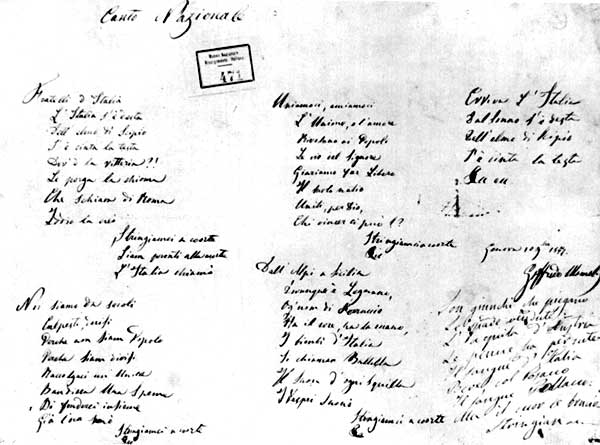 Canto Nazionale
Museo Nazionale
Risorgimento Italiano
471
Fratelli d'Italia
L'Italia s'è desta
Dell'elmo di Scipio
S'è cinta la testa
Dov'è la vittoria?!
Le porga la chioma
Che schiava di Roma
Iddio la creò
Stringiamci a coorte
Siam pronti alla morte
L'Italia chiamò
Noi siamo da secoli
Calpesti, derisi
Perché non siam Popolo
Perché siam divisi
Raccolgaci un'Unica
Bandiera una Speme
Di fonderci insieme
Già l'ora suonò
Stringiamci a coorte
Uniamoci, amiamoci
L'Unione, e l'amore
Rivelano ai Popoli
Le vie del Signore
Giuriamo far Libero
Il suolo natio
Uniti, per Dio,
Chi vincer ci può!?
Stringiamci a coorte
Dall'Alpi a Sicilia
Dovunque è Legnano,
Ogn'uom di Ferruccio
Ha il core, ha la mano,
I bimbi d'Italia
Si chiaman Balilla
Il Suon d'ogni Squilla
I Vespri Suonò
Stringiamci a coorte
Evviva l'Italia
Dal sonno s'è desta
Dell'elmo di Scipio
S'è cinta la testa
Genova
Goffredo Mameli
Son giunchi che piegano
Le Spade vendute
L'Aquila d'Austria
Le penne ha perdute
Il sangue d'Italia
Bevé, col Cosacco
Il sangue Polacco
Ma il cuor le bruciò
Stringiamci